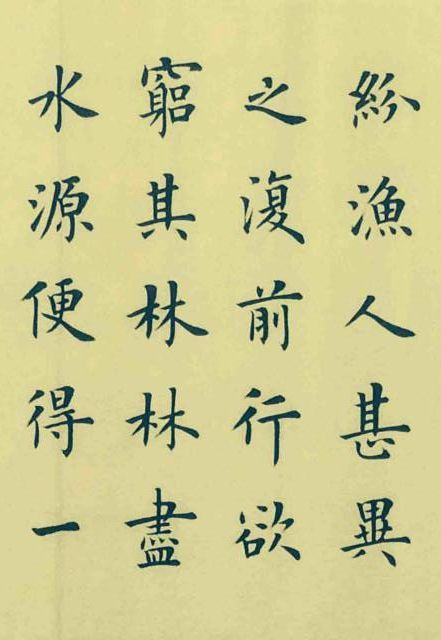 紛漁人甚異
之復前行欲
窮其林林盡
水源便得一